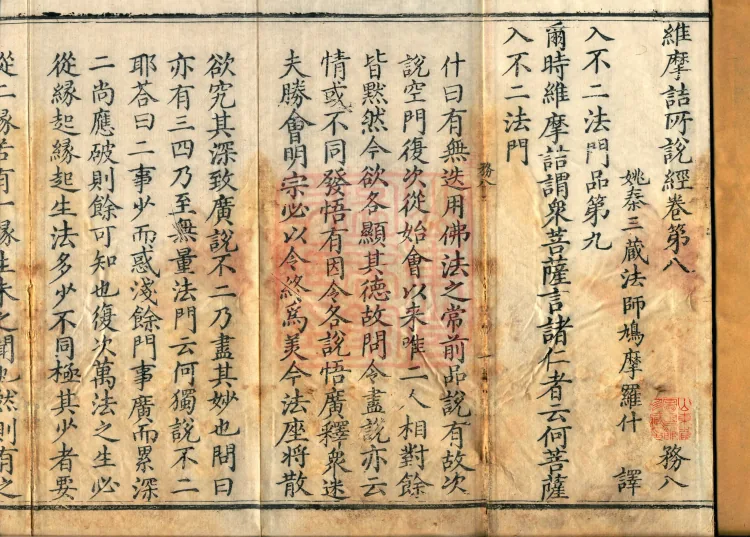 維摩詰所說經卷第八 務八
姚秦三藏法師鳩摩羅什 譯
入不二法門品第九
爾時維摩詰謂衆菩薩言諸仁者云何菩薩
入不二法門
務八
什曰有無迭用佛法之常前品說有故次
說空門復次從始會以来唯二人相對餘
皆默然今欲各顯其德故問令盡說亦云
情或不同發悟有因令各說悟廣釋衆迷
夫勝會明宗必以令終爲美今法座將散
欲究其深致廣說不二乃盡其妙也問曰
亦有三四乃至無量法門云何獨說不二
耶荅曰二事少而惑淺餘門事廣而累深
二尚應破則餘可知也復次萬法之生必
從緣起緣起生法多少不同極其少者要
從二緣若有一緣生未之聞也然則有之